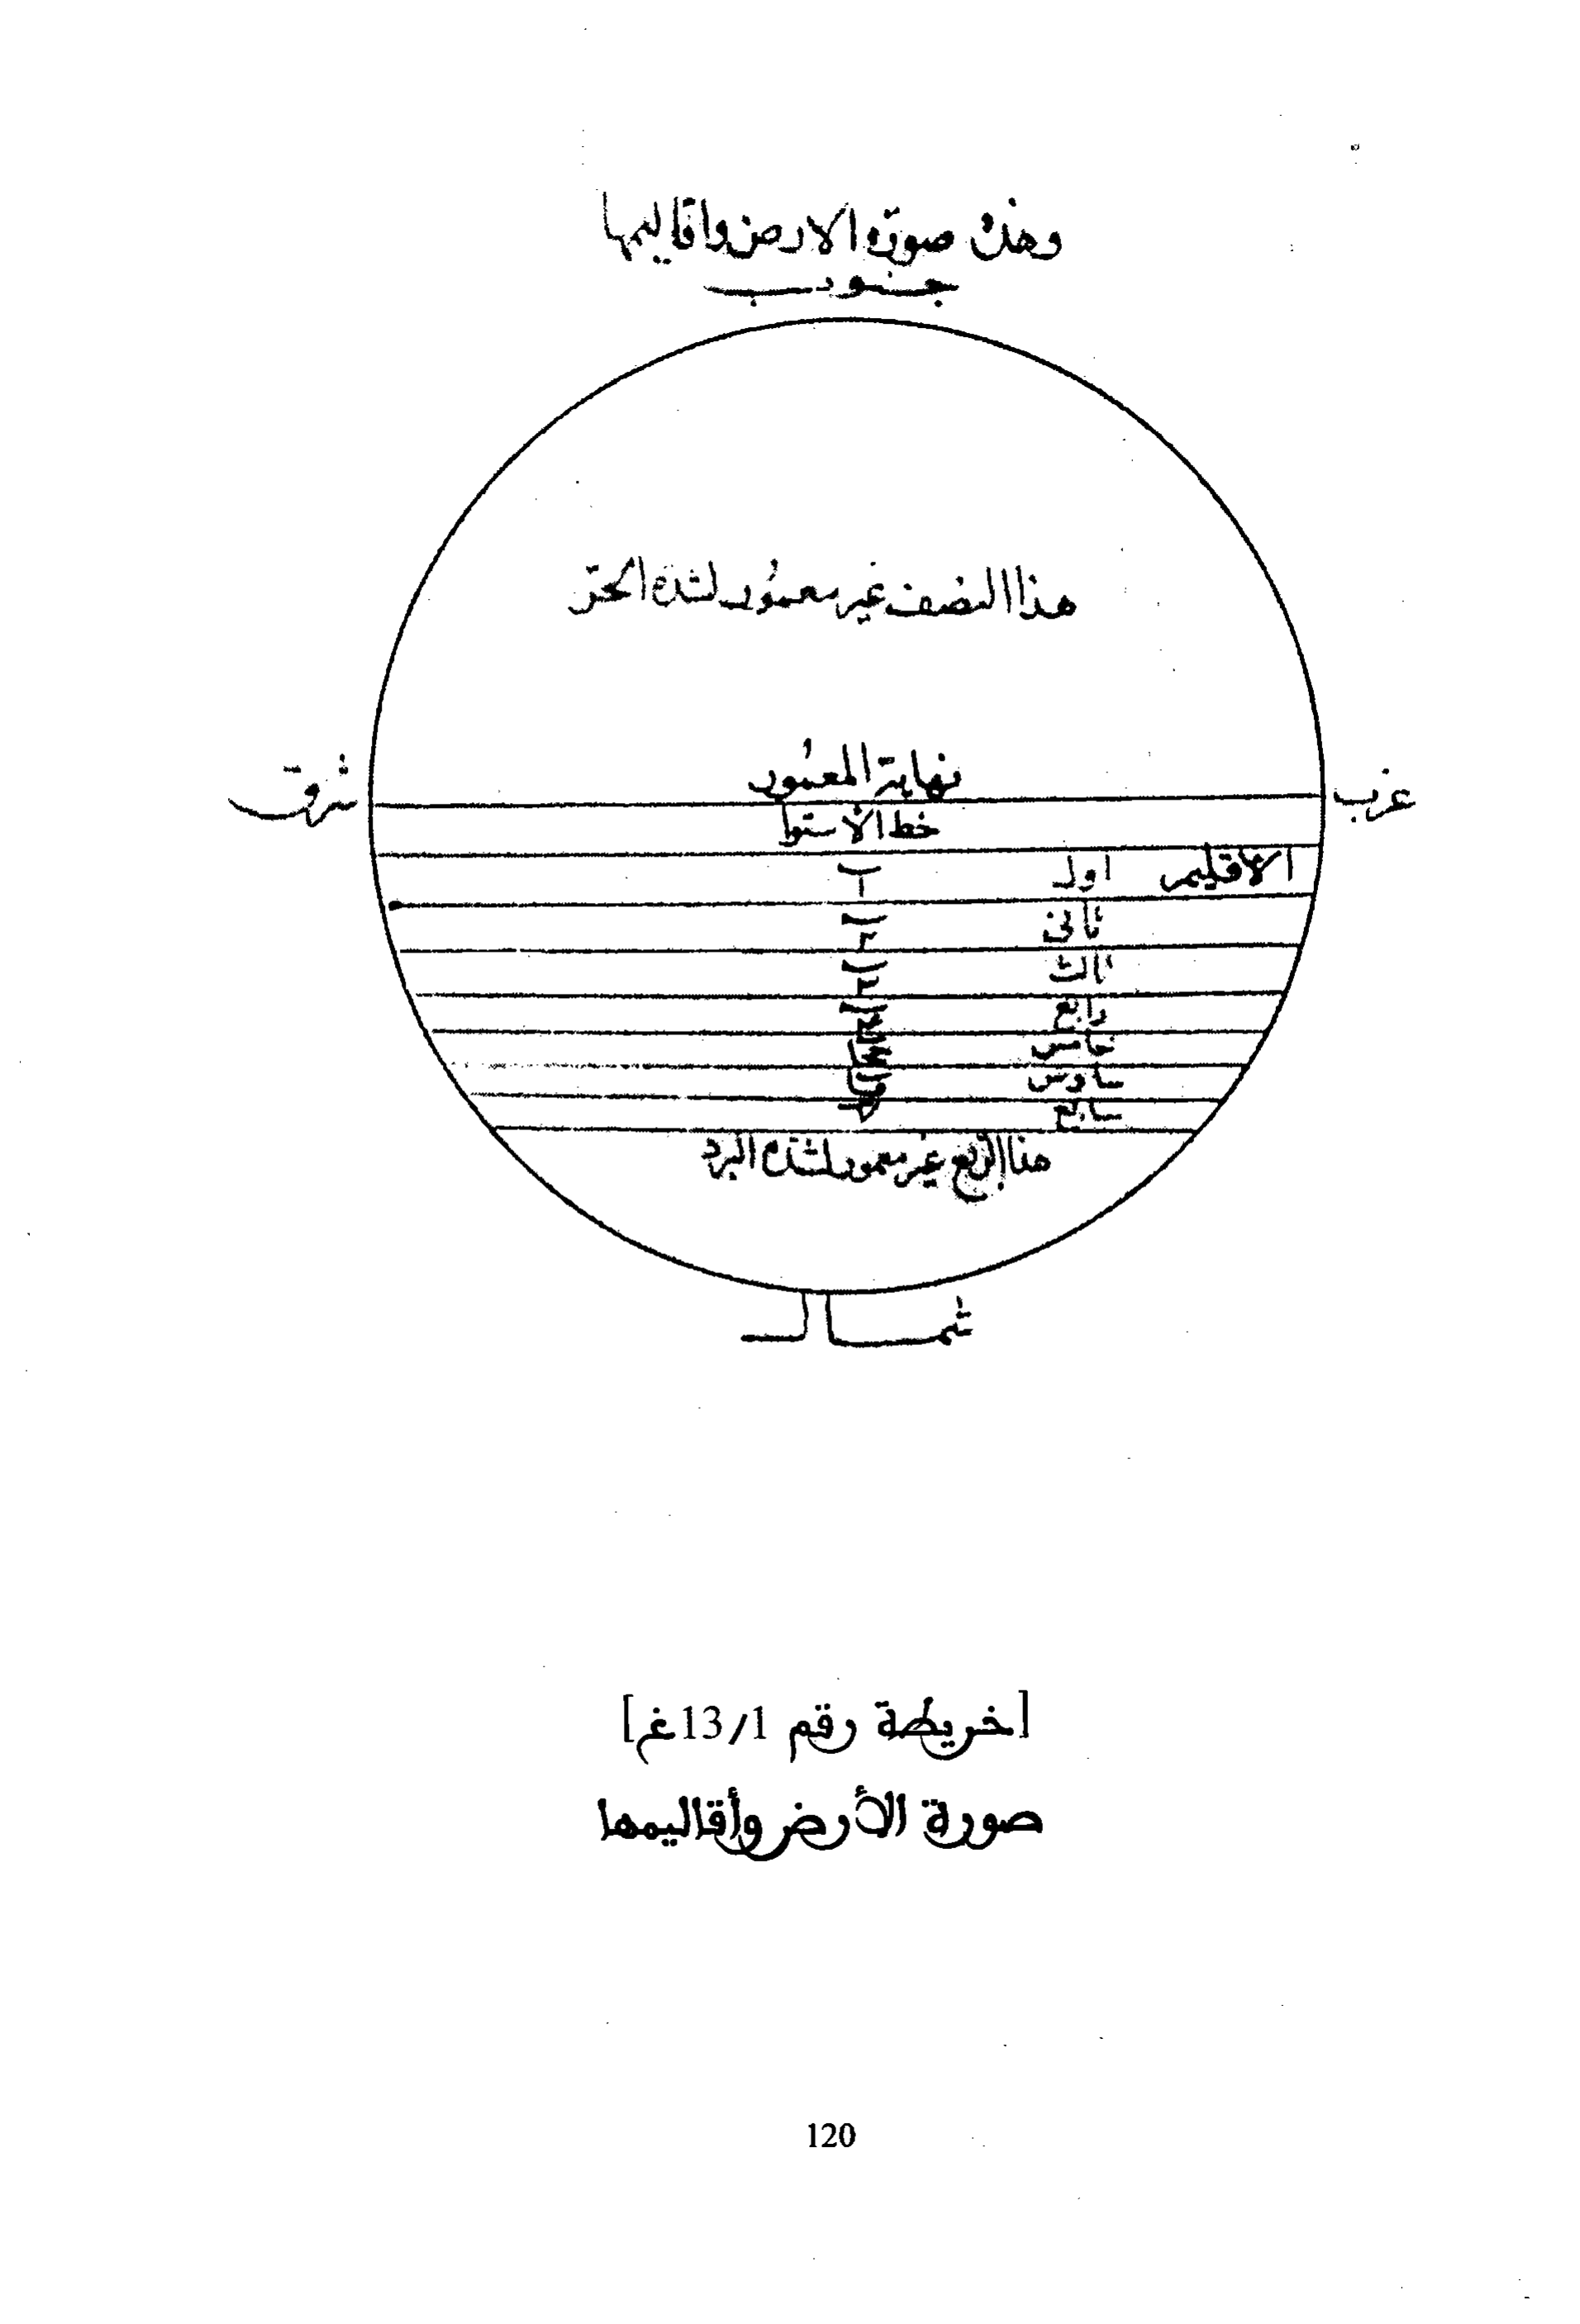 وهذه صورة الارض واقاليمها
جنوب
هذا النصف غير معمور لشدة الحر
نهاية المعمور
غرب
شرق
خط الاستوا
الأقليم اول
ثانى
ثالث
رابع
خامس
سادس
سابع
هذا الربع غير معمور لشدة البرد
شمال
[خريطة رقم 13/1غ]
صورة الأرض وأقاليمها
120